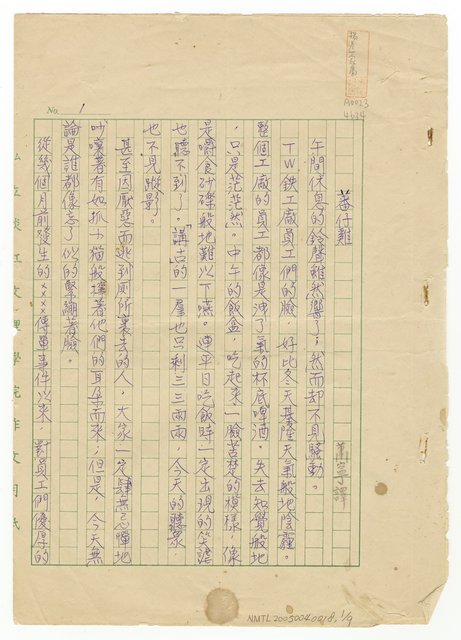 蕃仔雞
蕭寧譯
午間休息的鈴聲雖然響了，然而却不見騷動。
TW鉄工廠員工們的臉，好比冬天基隆天氣般地陰霾。
整個工廠的員工都像是洩了氣的杯底啤酒。失去知覺般地
，只是茫茫然。中午的飯盒，吃起來一臉苦楚的模樣，像
是嚼食砂礫般地難以下嚥。連平日吃飯時一定出現的笑謔
也聽不到了。「講古的一羣也只剩三三兩兩，今天的聽眾
也不見蹤影。
甚至因厭惡而逃到廁所裏去的人，大家一定肆無忌憚地
吵嚷著有如抓小猫般揪著他們的耳朵而來，但是，今天無
論是誰都像忘了似的緊繃著臉。
從幾個月前發生的×××傳單事件以來，對員工們優厚的
No. 1
私立淡江文理學院作文用紙
A0023
4624
NMTL20050040018, 1/9